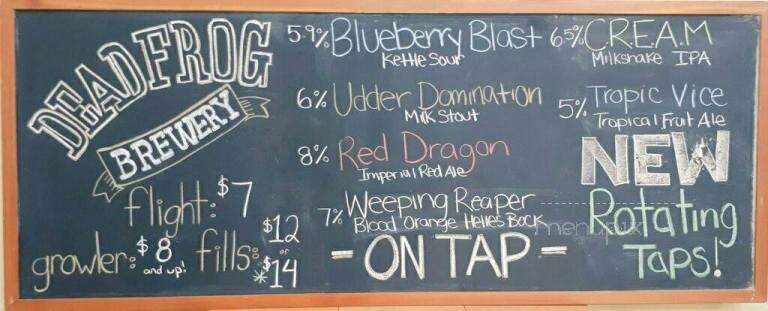 DEAD FROG
BREWERY
flight: $7
growler: $8
and up!
fills: $12
or
*$14
5.9% Blueberry Blast
Kettle Sour
6% Udder Domination
Milk Stout
8% Red Dragon
Imperial Red Ale
7% Weeping Reaper
Blood Orange Helles Bock
- ON TAP -
6.5% C.R.E.A.M
Milkshake IPA
5% Tropic Vice
Tropical Fruit Ale
NEW
Rotating
TAPS!
menupix